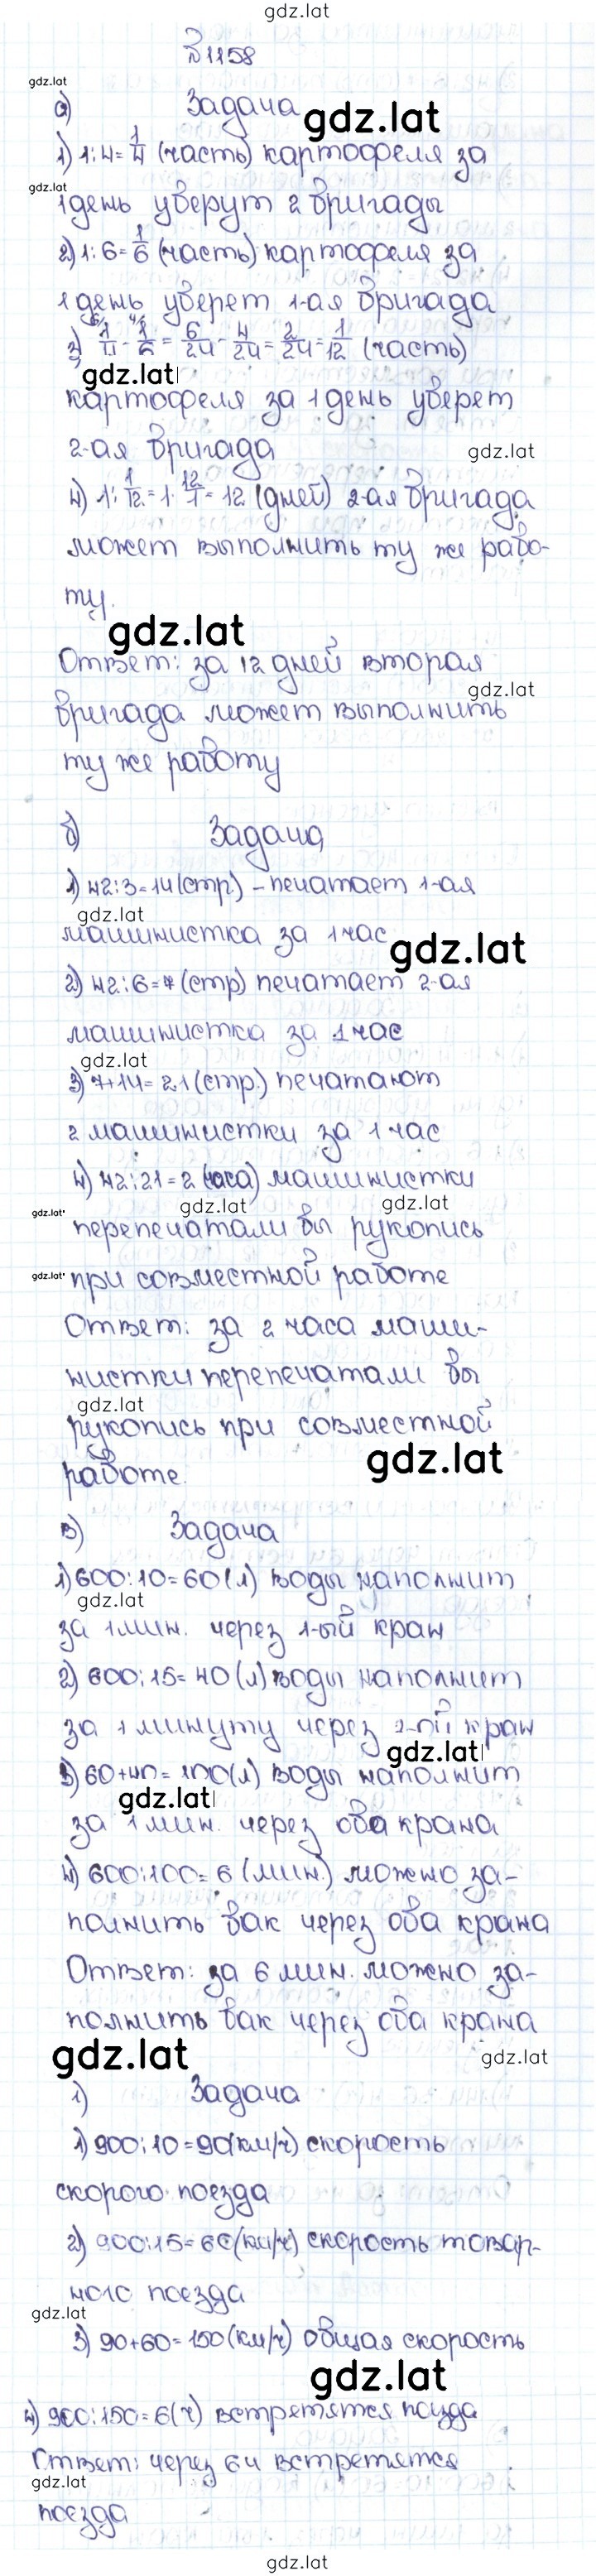 gdz.lat
№1158
gdz.lat
а) Задача gdz.lat
1) 1:4=1/4 (часть) картофеля за
gdz.lat
1 день уберут 2 бригады
2) 1:6=1/6 (часть) картофеля за
1 день уберет 1-ая бригада
3) 1/4 - 1/6 = 6/24 - 4/24 = 2/24 = 1/12 (часть)
gdz.lat
картофеля за 1 день уберет
2-ая бригада gdz.lat
4) 1:1/12=1·12/1=12 (дней) 2-ая бригада
может выполнить ту же рабо-
ту.
gdz.lat
Ответ: за 12 дней вторая
gdz.lat
бригада может выполнить
ту же работу
б) Задача
1) 42:3=14(стр.) - печатает 1-ая
gdz.lat
машинистка за 1 час gdz.lat
2) 42:6=7(стр) печатает 2-ая
машинистка за 1 час
gdz.lat
3) 7+14=21(стр.) печатают
2 машинистки за 1 час
4) 42:21=2(часа) машинистки
gdz.lat gdz.lat gdz.lat
перепечатали бы рукопись
gdz.lat при совместной работе
Ответ: за 2 часа маши-
нистки перепечатали бы
gdz.lat
рукопись при совместной
работе. gdz.lat
в) Задача
1) 600:10=60(л) воды наполнит
gdz.lat
за 1 мин. через 1-ый кран
2) 600:15=40(л) воды наполнит
за 1 минуту через 2-ой кран
gdz.lat
3) 60+40=100(л) воды наполнит
gdz.lat
за 1 мин. через оба крана
4) 600:100=6(мин.) можно за-
полнить бак через оба крана
Ответ: за 6 мин. можно за-
полнить бак через оба крана
gdz.lat gdz.lat
г) Задача
1) 900:10=90(км/ч) скорость
скорого поезда
2) 900:15=60(км/ч) скорость товар-
ного поезда
gdz.lat
3) 90+60=150(км/ч) общая скорость
gdz.lat
4) 900:150=6(ч) встретятся поезда
Ответ: через 6ч встретятся
gdz.lat
поезда
gdz.lat